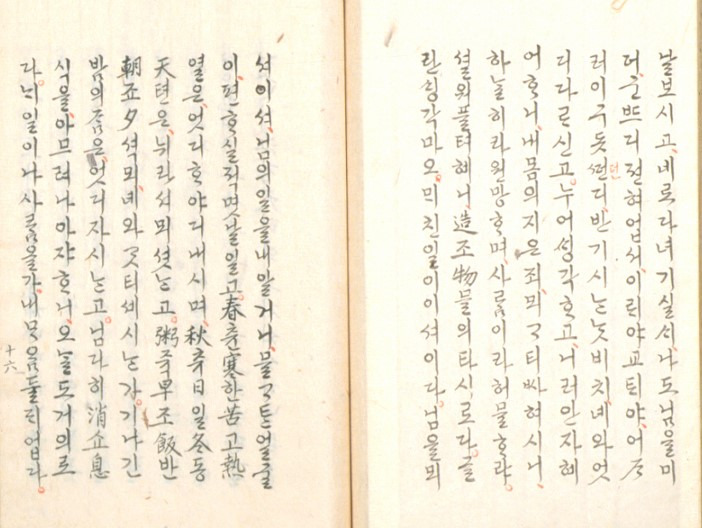 날보시고녜로다녀기실ᄉᆡ나도님을미
더군ᄠᅳ디젼혀업서이ᄅᆡ야교ᄐᆡ야어ᄌᆞ
러이구돗ᄯᅥᆫ디반기시ᄂᆞᆫᄂᆞᆺ비치녜와엇
던
디다ᄅᆞ신고누어ᄉᆡᆼ각ᄒᆞ고니러안자혜
어ᄒᆞ니내몸의지은죄뫼ᄀᆞ티ᄡᅡ혀시니
하ᄂᆞᆯ히라원망ᄒᆞ며사ᄅᆞᆷ이라허믈ᄒᆞ랴
셜워플텨혜니造조物믈의타시로다글
란ᄉᆡᆼ각마오ᄆᆡ친일이이셔이다님을뫼
셔이셔님의일을내알거니믈ᄀᆞᄐᆞᆫ얼굴
이편ᄒᆞ실적몃날일고春츈寒한苦고熱
열은엇디ᄒᆞ야디내시며秋츄日일冬동
天텬은뉘라셔뫼셧ᄂᆞᆫ고粥쥭早조飯반
朝죠夕셕뫼녜와ᄀᆞᆺ티셰시ᄂᆞᆫ가기나긴
밤의ᄌᆞᆷ은엇디자시ᄂᆞᆫ고님다히消쇼息
식을아므려나아쟈ᄒᆞ니오ᄂᆞᆯ도거의로
다ᄂᆡ일이나사ᄅᆞᆷ올가내ᄆᆞᄋᆞᆷ둘ᄃᆡ업다
十六